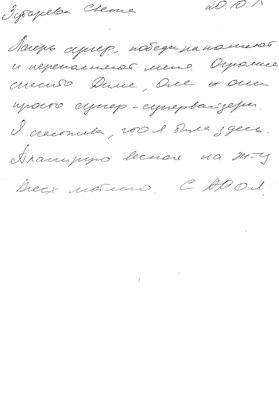 Зубарева Света 20.10.
Лагерь супер, победил наполняют
и переполняют меня. Огромное
спасибо Диме, Оле и они
просто супер-супервайзеры.
Я счастлива, что я была здесь.
Планирую весной на
Всех люблю.